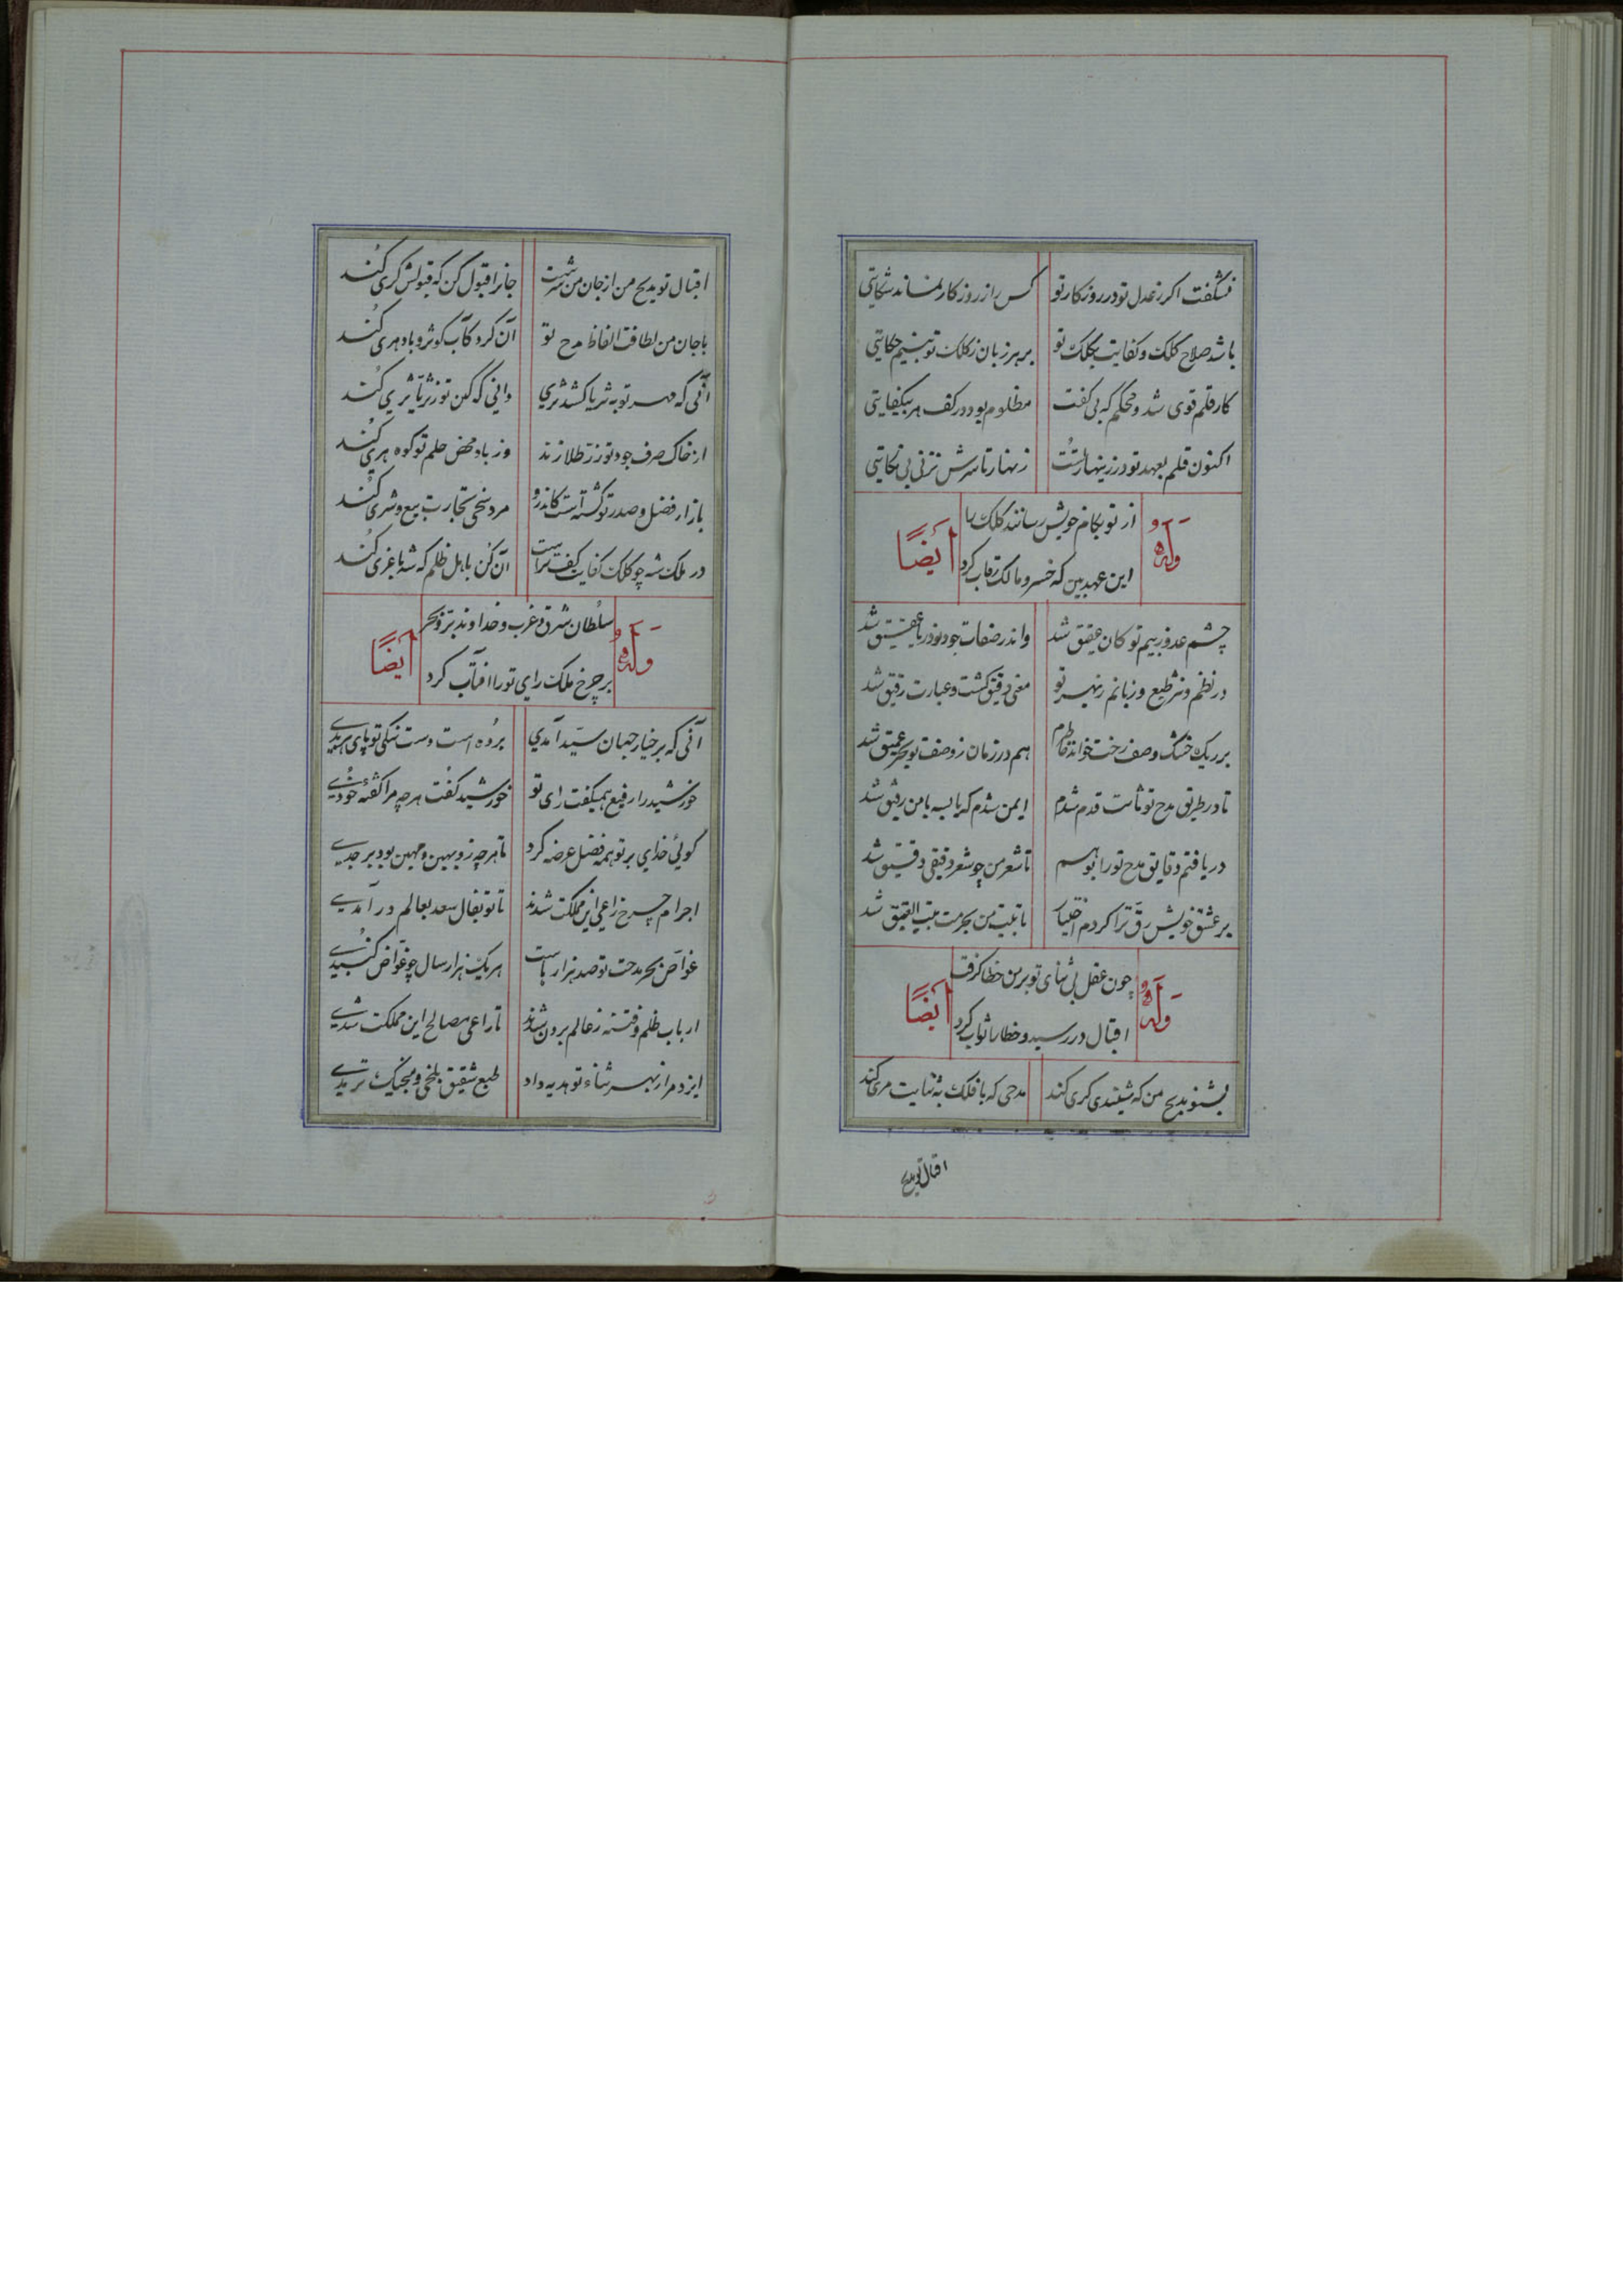 نشگفت اکر ز عدل تو در روزکار تو کس را ز روزکار نماند شکایتی
باشد صلاح کلک و کفایت بکلک تو بر هر زبان ز کلک تو بینم حکایتی
کار قلم قوی شد و محکم که بی کفت مظلوم بود در کف هر بیکفایتی
اکنون قلم بعهد تو در زینهار تست زنهار تا سرش نزنی بی نکایتی
وله ایضاً
از تو بکام خویش رسانند کلک را
این عهد بین که خسرو مالک رقاب کرد
چشم عدو ز بیم تو کان عقیق شد واندر صفات جود تو دریا غریق شد
در نظم و نثر طبع و زبانم ز بهر تو معنی دقیق کشت و عبارت رقیق شد
بر ریک خشک وصف رخت خواند خاطرم هم در زمان ز وصف تو بحر عمیق شد
تا در طریق مدح تو ثابت قدم شدم ایمن شدم که یا بسه با من رفیق شد
دریافتم دقایق مدح تو را بوهم تا شعر من چو شعر دقیقی دقیق شد
بر عشق خویش رق ترا کردم اختیار تا بیت من بحرمت بیت العتیق شد
وله ایضاً
چون عقل بی ثنای تو بر من خطا کرفت
اقبال در رسید و خطا را ثواب کرد
بشنو مدیح من که شنیدی کری کند مدحی که با فلک بنهایت مری کند
اقبال تو مدیح
اقبال تو مدیح من از جان من سرشت جانرا قبول کن که قبولش کری کند
با جان من لطافت الفاظ مدح تو آن کرد کآب کوثر و باد هری کند
آنی که مهر تو به ثریا کشد ثری وانی که کین تو ز ثریا ثری کند
از خاک صرف جود تو زر طلا زند وز باد محض حلم تو کوه هری کند
بازار فضل و صدر تو کشته است کاندرو مرد سخی تجارت بیع و شری کند
در ملک شه چو کلک کفایت بکف تراست آن کن باهل ظلم که شه با غری کند
وله ایضاً
سلطان شرق و غرب و خداوند بر و بحر
بر چرخ ملک رای تو را افتاب کرد
آنی که بر خیار جهان سید آمدی برده است دست نیکی تو پای هر بدی
خورشید را رفیع همیکفت رای تو خورشید کفت هر چه مرا کفته خودی
کوئی خدای بر تو همه فضل عرضه کرد تا هر چه زو بهین و مهین بود بر چدی
اجرام چرخ راعی این مملکت شدند تا تو بفال سعد بعالم در آمدی
غواص بحر مدحت تو صد هزار باست هر یک هزار سال چو غواص کنبدی
ارباب ظلم و فتنه ز عالم برون شدند تا راعی مصالح این مملکت شدی
ایزد مرا ز بهر ثناء تو هدیه داد طبع شقیق بلخی و منجیک ترمدی